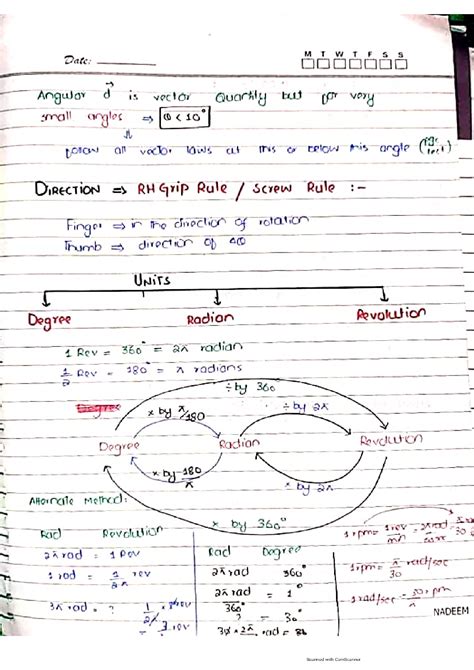 M T W T F S S
Date:
Angular d is vector Quantity but for very
small angles ⇒ θ < 10°
follow all vector laws at this or below this angle
DIRECTION ⇒ RH Grip Rule / Screw Rule :-
Finger ⇒ in the direction of rotation
Thumb ⇒ direction of Δθ
UNITS
Degree Radian Revolution
1 Rev = 360° = 2π radian
1/2 Rev = 180° = π radians
÷ by 360
Degree
× by π/180 ÷ by 2π
Degree Radian Revolution
× by 180/π × by 2π
× by 360°
Alternate Method:
Rad Revolution
2π rad = 1 Rev
1 rad = 1/2π rev
3π rad = ?
Rad Degree
2π rad 360°
2π rad = 1°
360°
? = 30°
1 rpm = 1 rev/min = 2π rad/60 sec = π/30
1 rpm = π/30 rad/sec
1 rad/sec = 30 rpm/π
NADEEM
Scanned with CamScanner